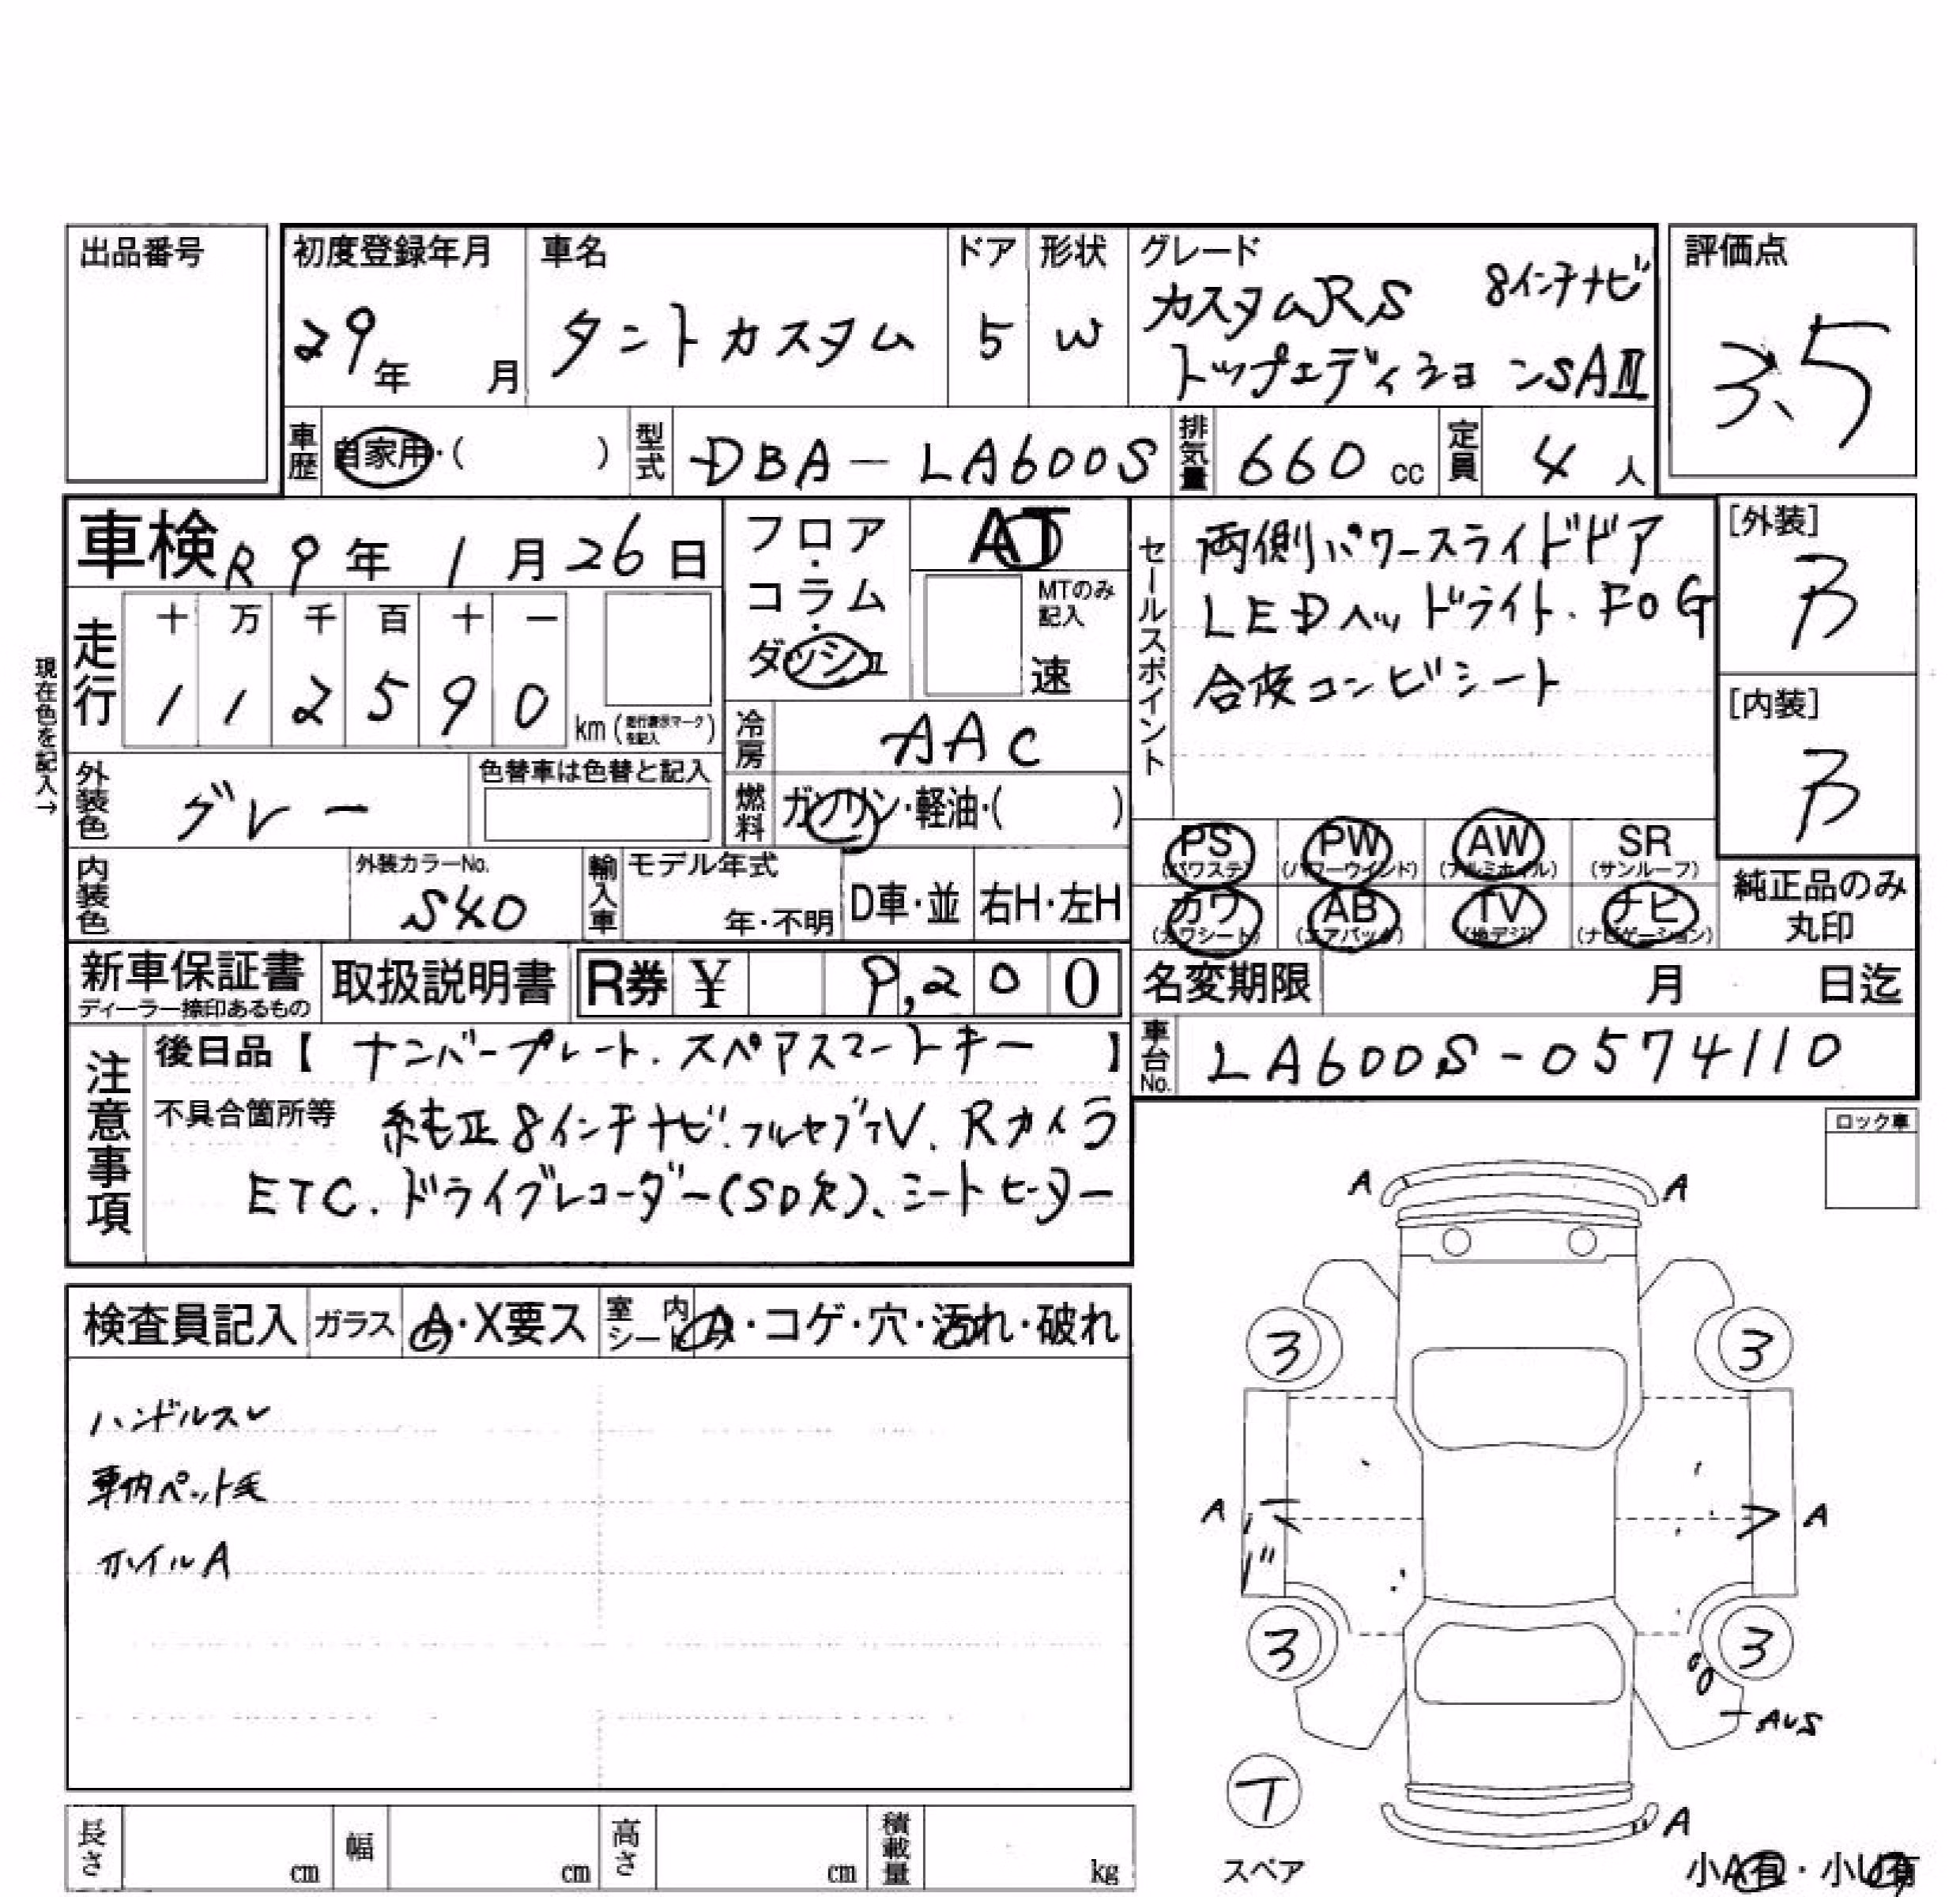 出品番号
初度登録年月
29年 月
車名
タントカスタム
ドア
5
形状
W
グレード
カスタムRS 8インチナビ
トップエディションSAⅢ
評価点
3.5
車歴
自家用・( )
型式
DBA-LA600S
排気量
660 cc
定員
4 人
車検 R 9年 1月 26日
フロア・コラム・ダッシュ
AT
MTのみ記入
速
セールスポイント
両側パワースライドドア
LEDヘッドライト.FOG
合皮コンビシート
[外装]
B
[内装]
B
現在色を記入→
走行
十 万 千 百 十 一
1 1 2 5 9 0
km (走行表示マークを記入)
冷房
AAC
外装色
グレー
色替車は色替と記入
燃料
ガソリン・軽油・( )
PS (パワステ)
PW (パワーウインド)
AW (アルミホイル)
SR (サンルーフ)
カワ (カワシート)
AB (エアバック)
TV (地デジ)
ナビ (ナビゲーション)
純正品のみ丸印
内装色
外装カラーNo.
S40
輸入車
モデル年式
年・不明
D車・並
右H・左H
新車保証書
ディーラー捺印あるもの
取扱説明書
R券 ¥ 9,200
名変期限
月 日迄
車台No.
LA600S-0574110
注意事項
後日品【 ナンバープレート.スペアスマートキー 】
不具合箇所等 純正8インチナビ.フルセグTV.Rカメラ
ETC.ドライブレコーダー(SD欠)、シートヒーター
ロック車
検査員記入
ガラス
A・X要ス
室内シート
A・コゲ・穴・汚れ・破れ
ハンドルスレ
車内ペット毛
ホイルA
A A
3 3
A A
3 3
AUS
T
スペア
A
小A有・小U有
長さ cm
幅 cm
高さ cm
積載量 kg